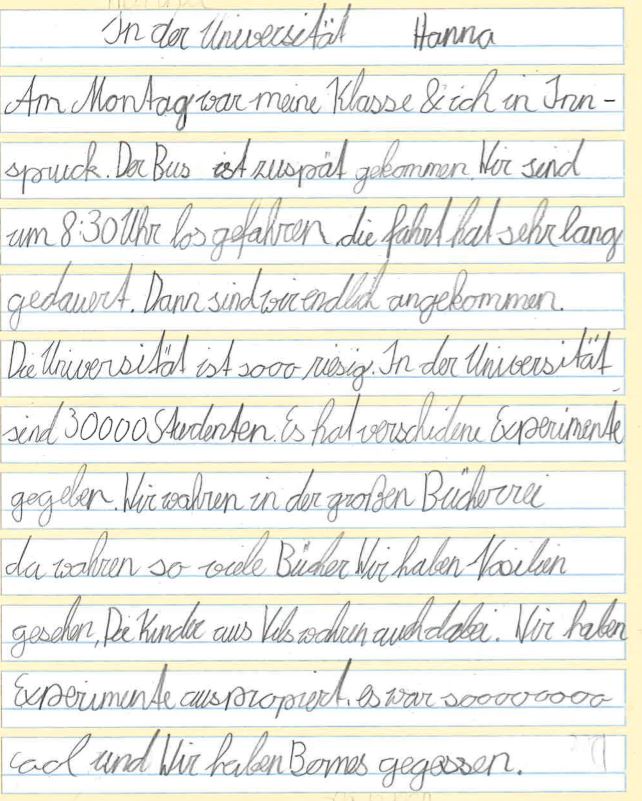 In der Universität Hanna
Am Montag war meine Klasse & ich in Inn-
spruck. Der Bus ist zuspät gekommen. Wir sind
um 8:30 Uhr los gefahren die fahrt hat sehr lang
gedauert. Dann sind wir endlich angekommen.
Die Universität ist sooo riesig. In der Universität
sind 30000 Studenten. Es hat verschidene Experimente
gegeben. Wir wahren in der großen Bücherrei
da wahren so viele Bücher Wir haben Vosilien
gesehen, Die Kinder aus Vils wahren auch dabei. Wir haben
Experimente auspropiert. es war sooooooooo
cool und Wir haben Bomes gegessen.